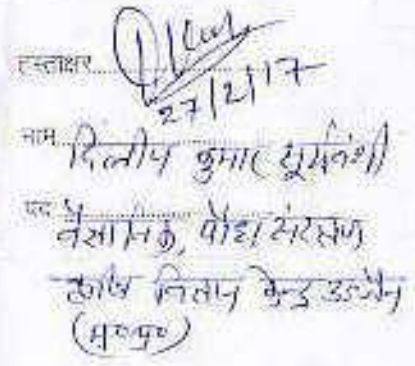 हस्ताक्षर
27/2/17
नाम दिलीप कुमार सूर्यवंशी
पद वैज्ञानिक, पौध संरक्षण
कृषि विज्ञान केन्द्र उज्जैन
(म०प्र०)